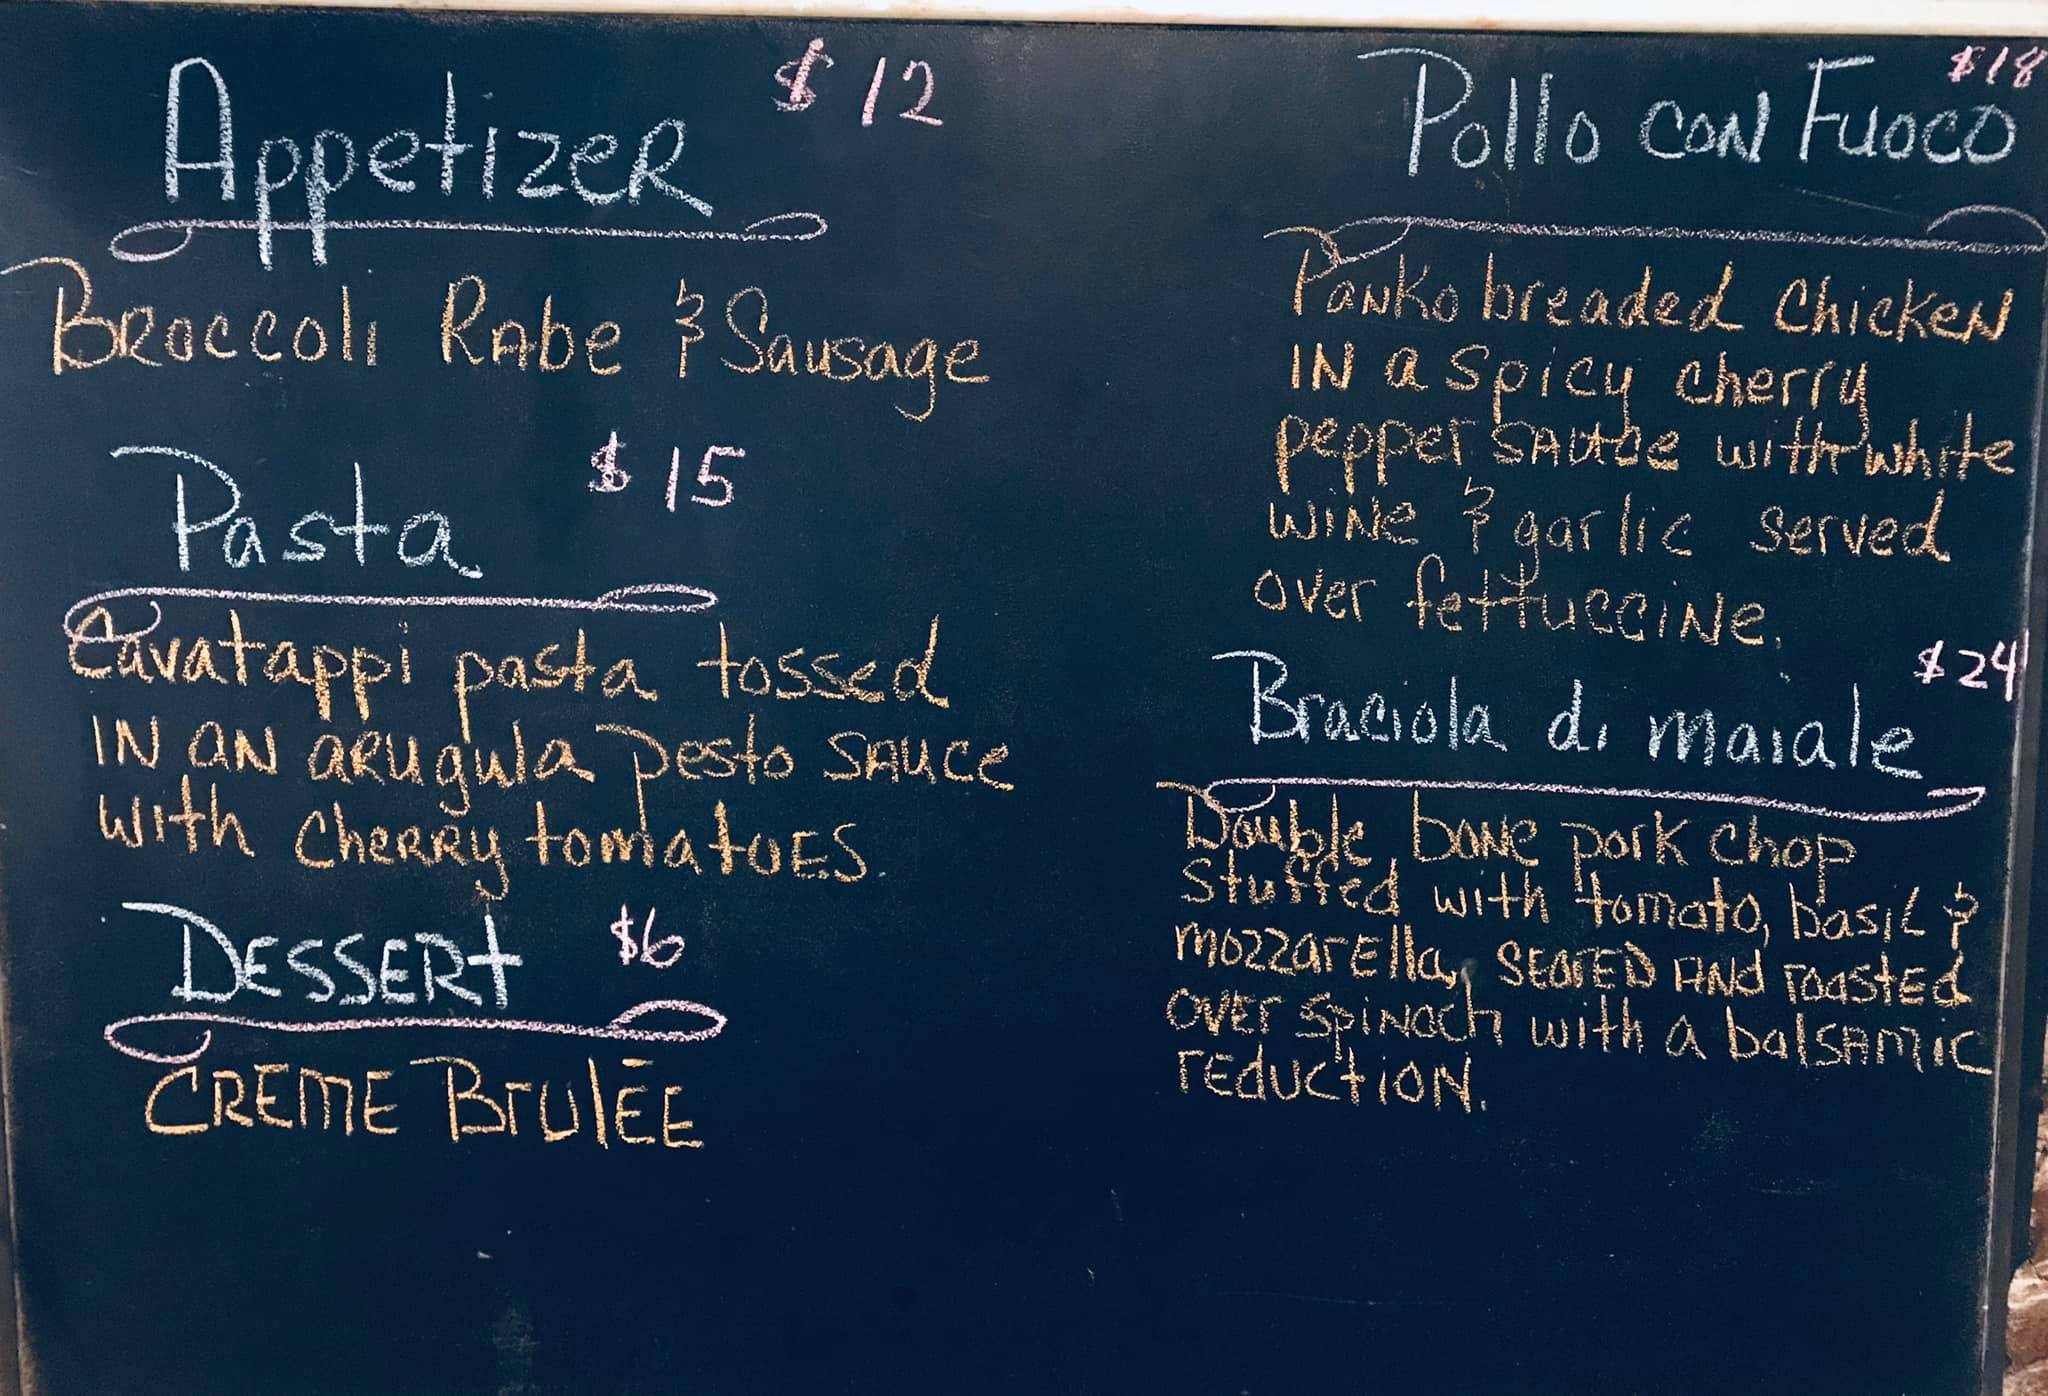 Appetizer $12
Broccoli Rabe & Sausage
Pasta $15
Cavatappi pasta tossed
in an arugula pesto sauce
with cherry tomatoes.
Dessert $6
Creme Brulēe
Pollo con Fuoco $18
Panko breaded chicken
in a spicy cherry
pepper sauce with white
wine & garlic served
over fettuccine.
Braciola di maiale $24
Double bone pork chop
stuffed with tomato, basil &
mozzarella, seared and roasted
over spinach with a balsamic
reduction.